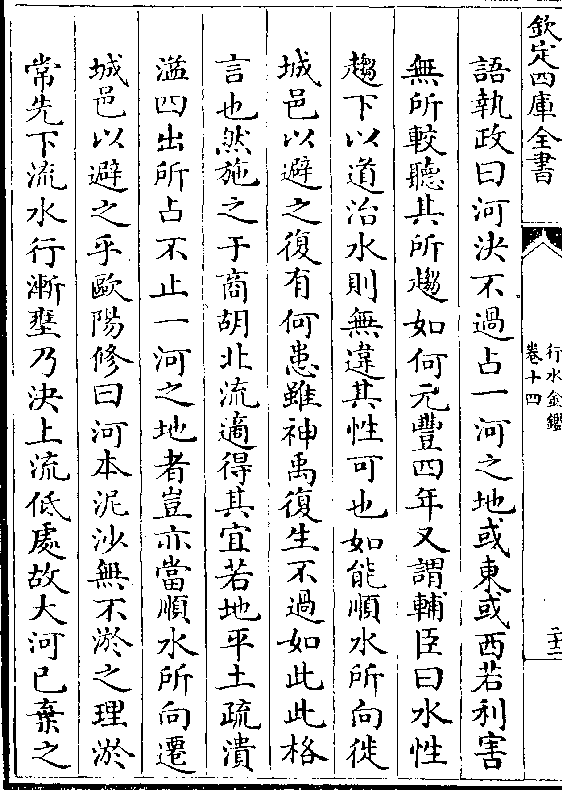 欽定四庫全書
行水金鑑
卷十四
二十二
語執政曰河決不過占一河之地或東或西若利害
無所較聽其所趨如何元豐四年又謂輔臣曰水性
趨下以道治水則無違其性可也如能順水所向徙
城邑以避之復有何患雖神禹復生不過如此此格
言也然施之于商胡北流適得其宜若地平土疏潰
溢四出所占不止一河之地者豈亦當順水所向遷
城邑以避之乎歐陽修曰河本泥沙無不淤之理淤
常先下流水行漸壅乃決上流低處故大河已棄之